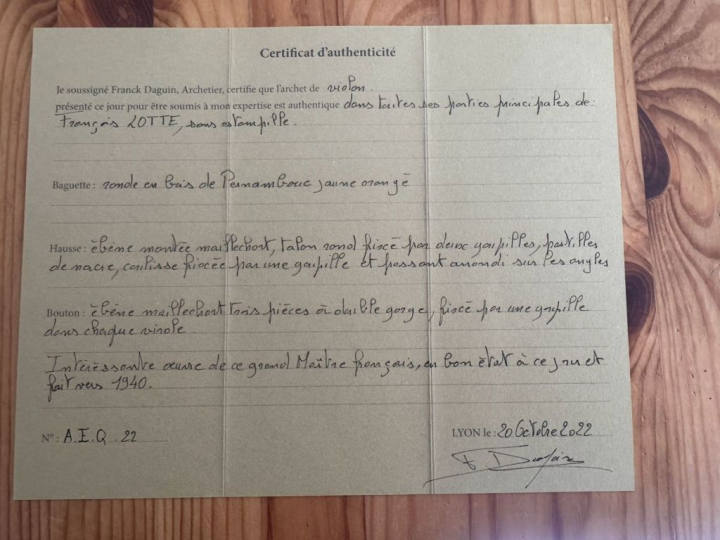 Certificat d'authenticité
Je soussigné Franck Daguin, Archetier, certifie que l'archet de violon.
présenté ce jour pour être soumis à mon expertise est authentique dans toutes ses parties principales de
François LOTTE, sans estampille.
Baguette : ronde en bois de Pernambouc jaune orangé
Hausse : ébène montée maillechort, talon rond fixcé par deux goupilles, pastilles
de nacre, coulisse fixcée par une goupille et passant arrondi sur les angles
Bouton : ébène maillechort trois pièces à double gorge, fixcé par une goupille
dans chaque virole.
Intéressante œuvre de ce grand Maître français, en bon état à ce jour et
fait vers 1940.
N° : A.E.Q 22
LYON le : 20 Octobre 2022
F Daguin